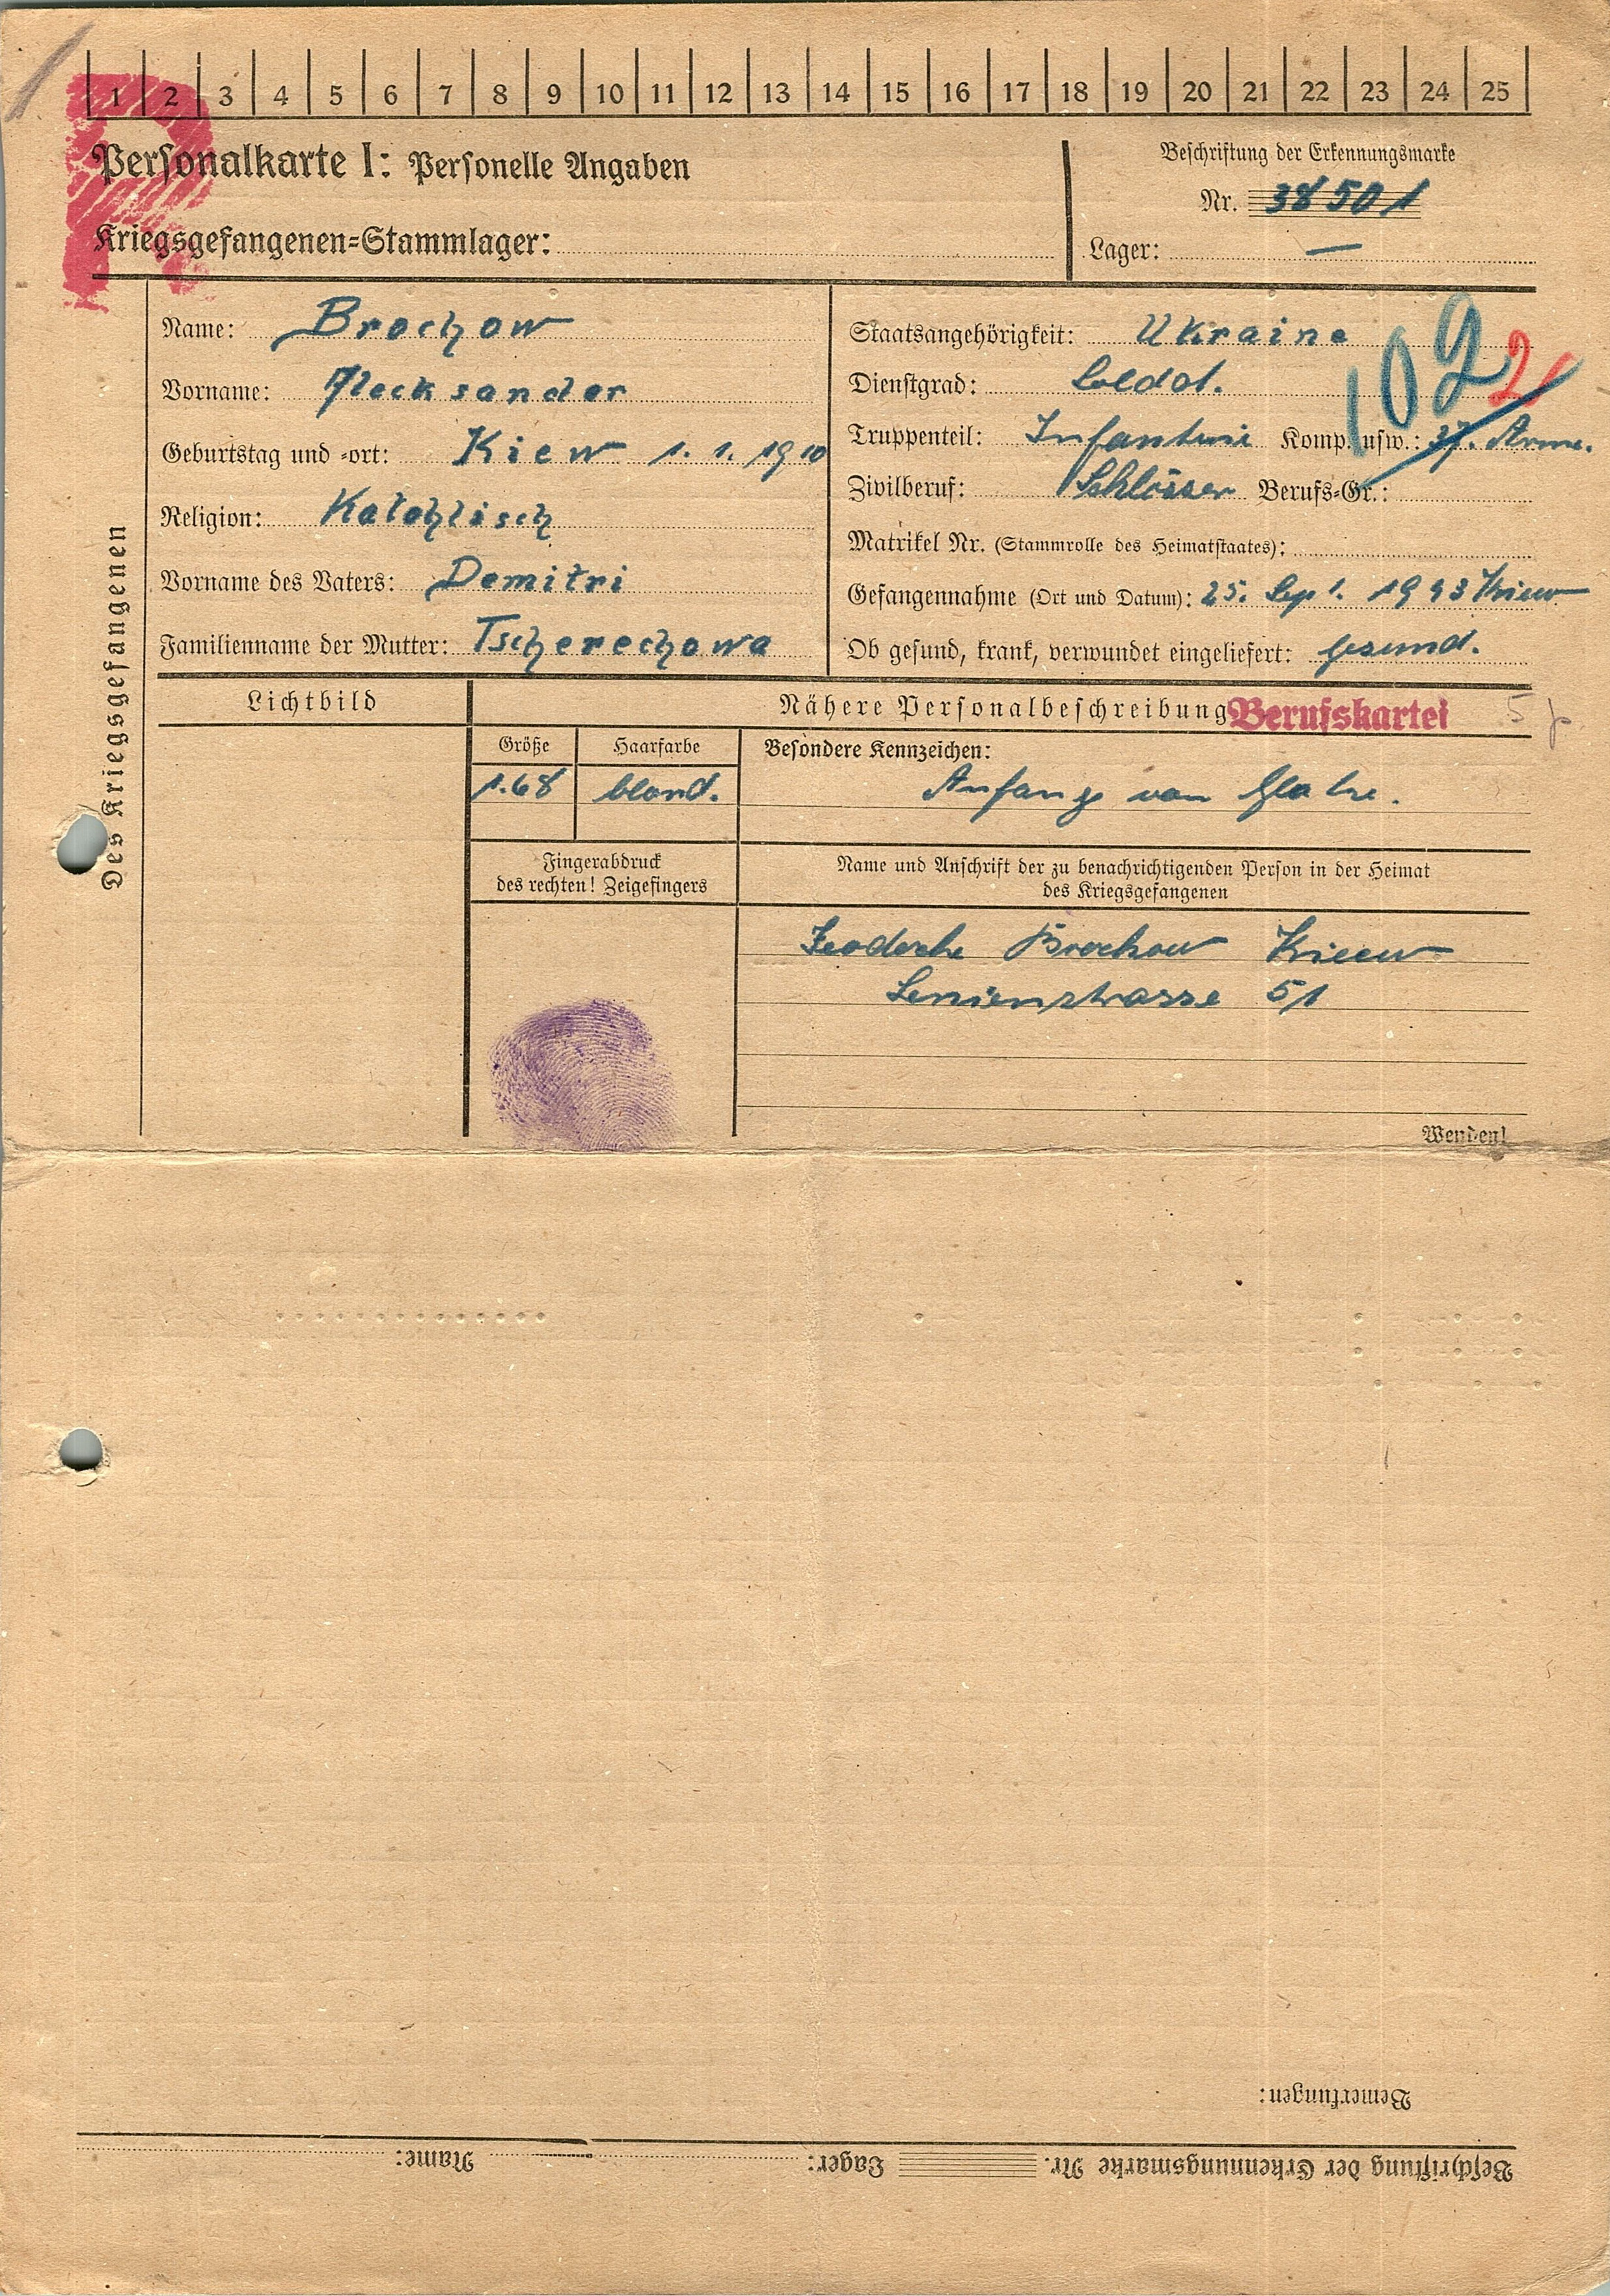 1 2 3 4 5 6 7 8 9 10 11 12 13 14 15 16 17 18 19 20 21 22 23 24 25
Personalkarte I: Personelle Angaben
Beschriftung der Erkennungsmarke
Nr. 38501
Kriegsgefangenen-Stammlager:
Lager: —
Des Kriegsgefangenen
Name: Brochow
Vorname: Alecksander
Geburtstag und -ort: Kiew 1. 1. 1910
Religion: Katohlisch
Vorname des Vaters: Demitri
Familienname der Mutter: Tscherechowa
Staatsangehörigkeit: Ukraine
1092
Dienstgrad: Soldat.
Truppenteil: Infanterie Komp. usw.: 37. Arme.
Zivilberuf: Schlosser Berufs-Gr.:
Matrikel Nr. (Stammrolle des Heimatstaates):
Gefangennahme (Ort und Datum): 25. Sept. 1943 Kiew
Ob gesund, krank, verwundet eingeliefert: gesund.
Lichtbild
Nähere Personalbeschreibung
Berufskartei
Größe
Haarfarbe
Besondere Kennzeichen:
1.68
blond.
Anfang von Glatze.
Fingerabdruck
des rechten! Zeigefingers
Name und Anschrift der zu benachrichtigenden Person in der Heimat
des Kriegsgefangenen
Brochow Kieew
Lenienstrasse 51
Wenden!
Bemerkungen:
Beschriftung der Erkennungsmarke Nr. Lager: Name: